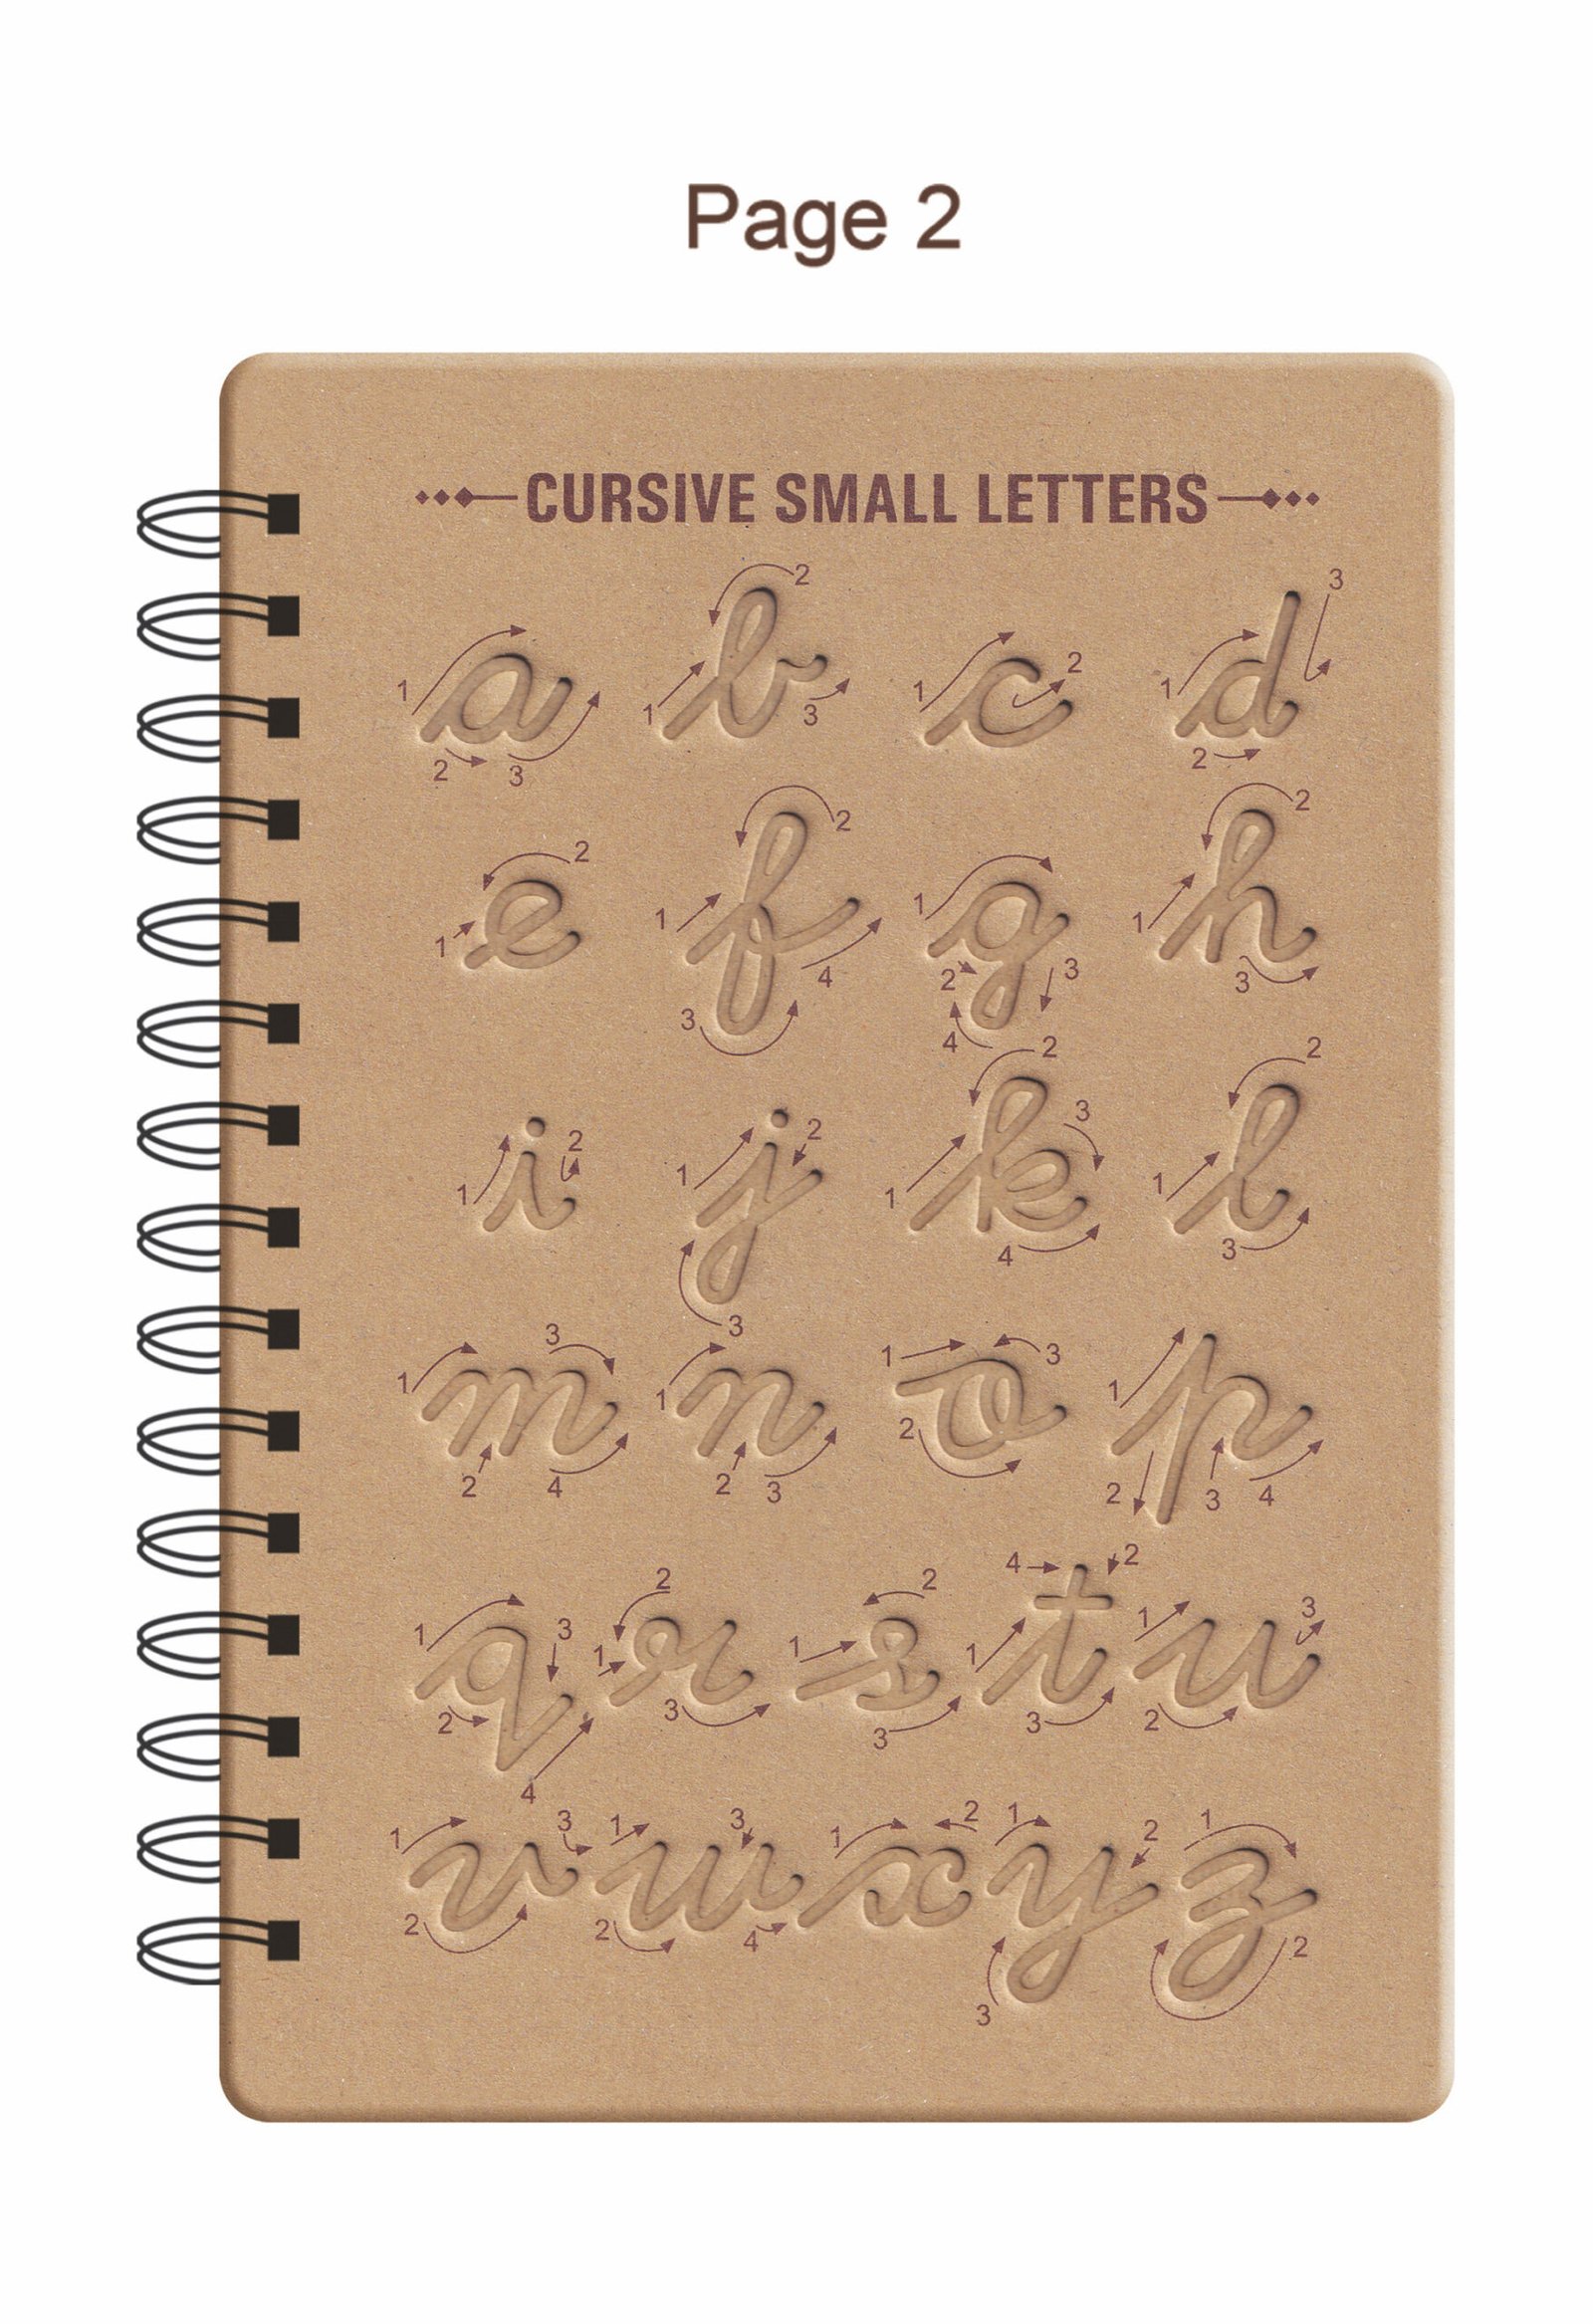 Page 2
CURSIVE SMALL LETTERS
a b c d
e f g h
i j k l
m n o p
q r s t u
v w x y z